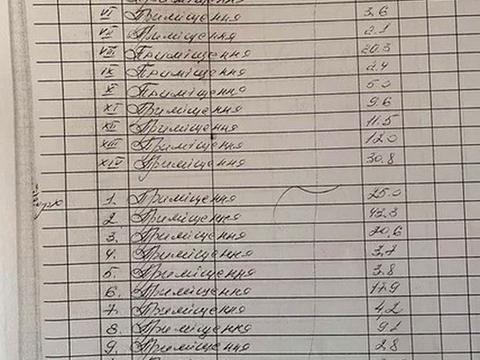 VI Приміщення 3.6
VII Приміщення 2.1
VIII Приміщення 20.3
IX Приміщення 2.4
X Приміщення 5.0
XI Приміщення 9.6
XII Приміщення 11.5
XIII Приміщення 12.0
XIV Приміщення 30.8
1. Приміщення 25.0
2 Приміщення 43.3
3. Приміщення 20.6
4. Приміщення 3.7
5. Приміщення 3.8
6. Приміщення 17.9
7. Приміщення 4.2
8. Приміщення 9.1
9. Приміщення 2.8